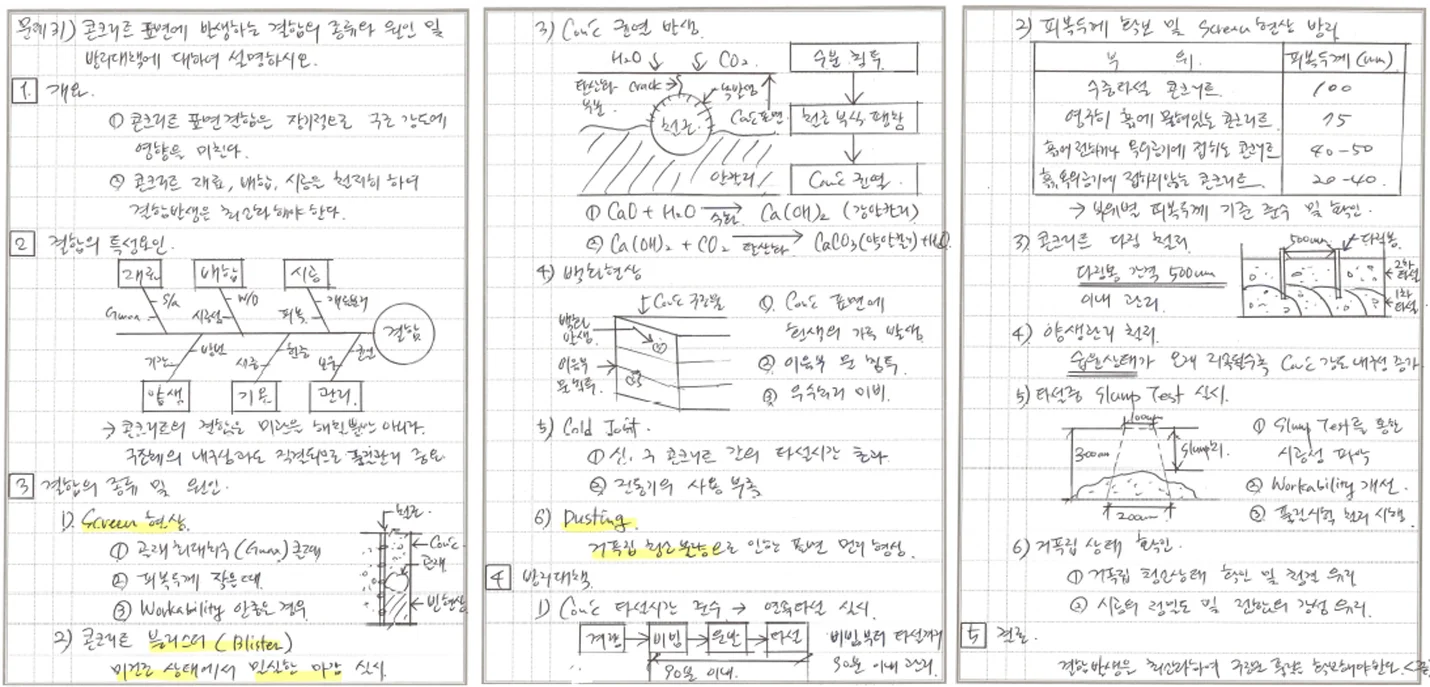 문제 31) 콘크리트 표면에 발생하는 결함의 종류와 원인 및
방지대책에 대하여 설명하시오.
1. 개요.
① 콘크리트 표면결함은 장기적으로 구조 강도에
영향을 미친다.
② 콘크리트 재료, 배합, 시공은 철저히 하여
결함발생은 최소화 해야 한다.
2 결함의 특성요인.
재료 배합 시공
S/a W/O
Gmax 시공성 피복
결함
기간 방법 시즌 한중 보수
양생 기온 관리
→ 콘크리트의 결함은 미관을 해칠뿐만 아니라
구조체의 내구성과도 직결되므로 품질관리 중요
3 결함의 종류 및 원인.
1) Screen 현상.
① 골재 최대치수(Gmax) 클때
② 피복두께 작은때.
③ Workability 안좋은 경우
철근
Con'c
골재
2) 콘크리트 블리스터 (Blister)
미건조 상태에서 밀실한 마감 실시.
3) Con'c 균열 발생.
H₂O CO₂
탄산화 부분
crack
녹발생
철근
Con'c 표면
알칼리
수분 침투
철근 부식 팽창
Con'c 균열.
① CaO + H₂O → 수화 Ca(OH)₂ (강알칼리)
② Ca(OH)₂ + CO₂ → 탄산화 CaCO₃(약알칼리)+H₂O
4) 백화현상
Con'c 구조물
백화 발생
이음부
① Con'c 표면에
흰색의 가루 발생
② 이음부 물 침투
③ 우수처리 미비.
5) Cold Joint.
① 신, 구 콘크리트 간의 타설시간 초과
② 진동기의 사용 부족
6) Dusting.
거푸집 청소불량으로 인한 표면 먼지 현상.
4 방지대책.
1) Con'c 타설시간 준수 → 연속타설 실시.
계량 → 비빔 → 운반 → 타설
90분 이내.
비빔부터 타설까지
90분 이내 관리.
2) 피복두께 확보 및 Screen 현상 방지
부 위. 피복두께 (mm)
수중타설 콘크리트 100
영구히 흙에 묻혀있는 콘크리트 75
흙에 접하거나 옥외공기에 접하는 콘크리트 40-50
흙, 옥외공기에 접하지않는 콘크리트 20-40.
→ 부위별 피복두께 기준 준수 및 확인.
3) 콘크리트 다짐 철저.
다짐봉 간격 500mm
이내 관리
500mm
다짐봉.
2차 타설
1차 타설
4) 양생관리 철저
습윤상태가 오래 지속될수록 Con'c 강도 내구성 증가
5) 타설중 Slump Test 실시.
100mm
300mm
Slump치.
200mm
① Slump Test를 통한
시공성 파악
② Workability 개선.
③ 품질시험 철저 시행
6) 거푸집 상태 확인.
① 거푸집 청소상태 확인 및 청결 유지
② 시공의 정밀도 및 전합의 강성 유지.
5 결론.
결함발생은 최소화하여 구조물 품질을 확보해야한다 <끝>